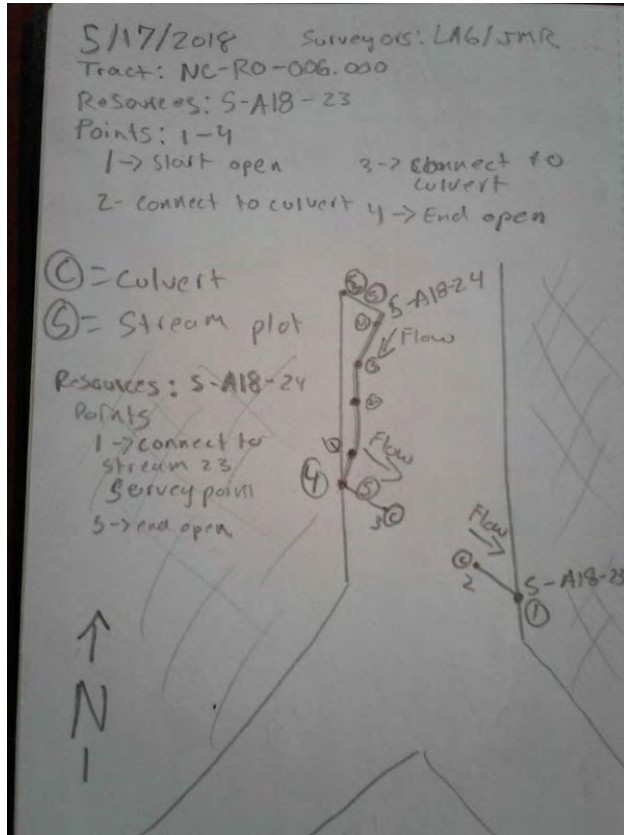 5/17/2018 Surveyors: LAG/JMR
Tract: NC-RO-006.000
Resources: S-A18-23
Points: 1-4
1-> Start open
2- connect to culvert
3-> Connect to
culvert
4-> End open
C = Culvert
S = Stream plot
Resources: S-A18-24
Points
1->connect to
stream 23
Servey point
5->end open
S-A18-24
Flow
Flow
4
S
3 C
Flow
C
2
S-A18-23
1
N